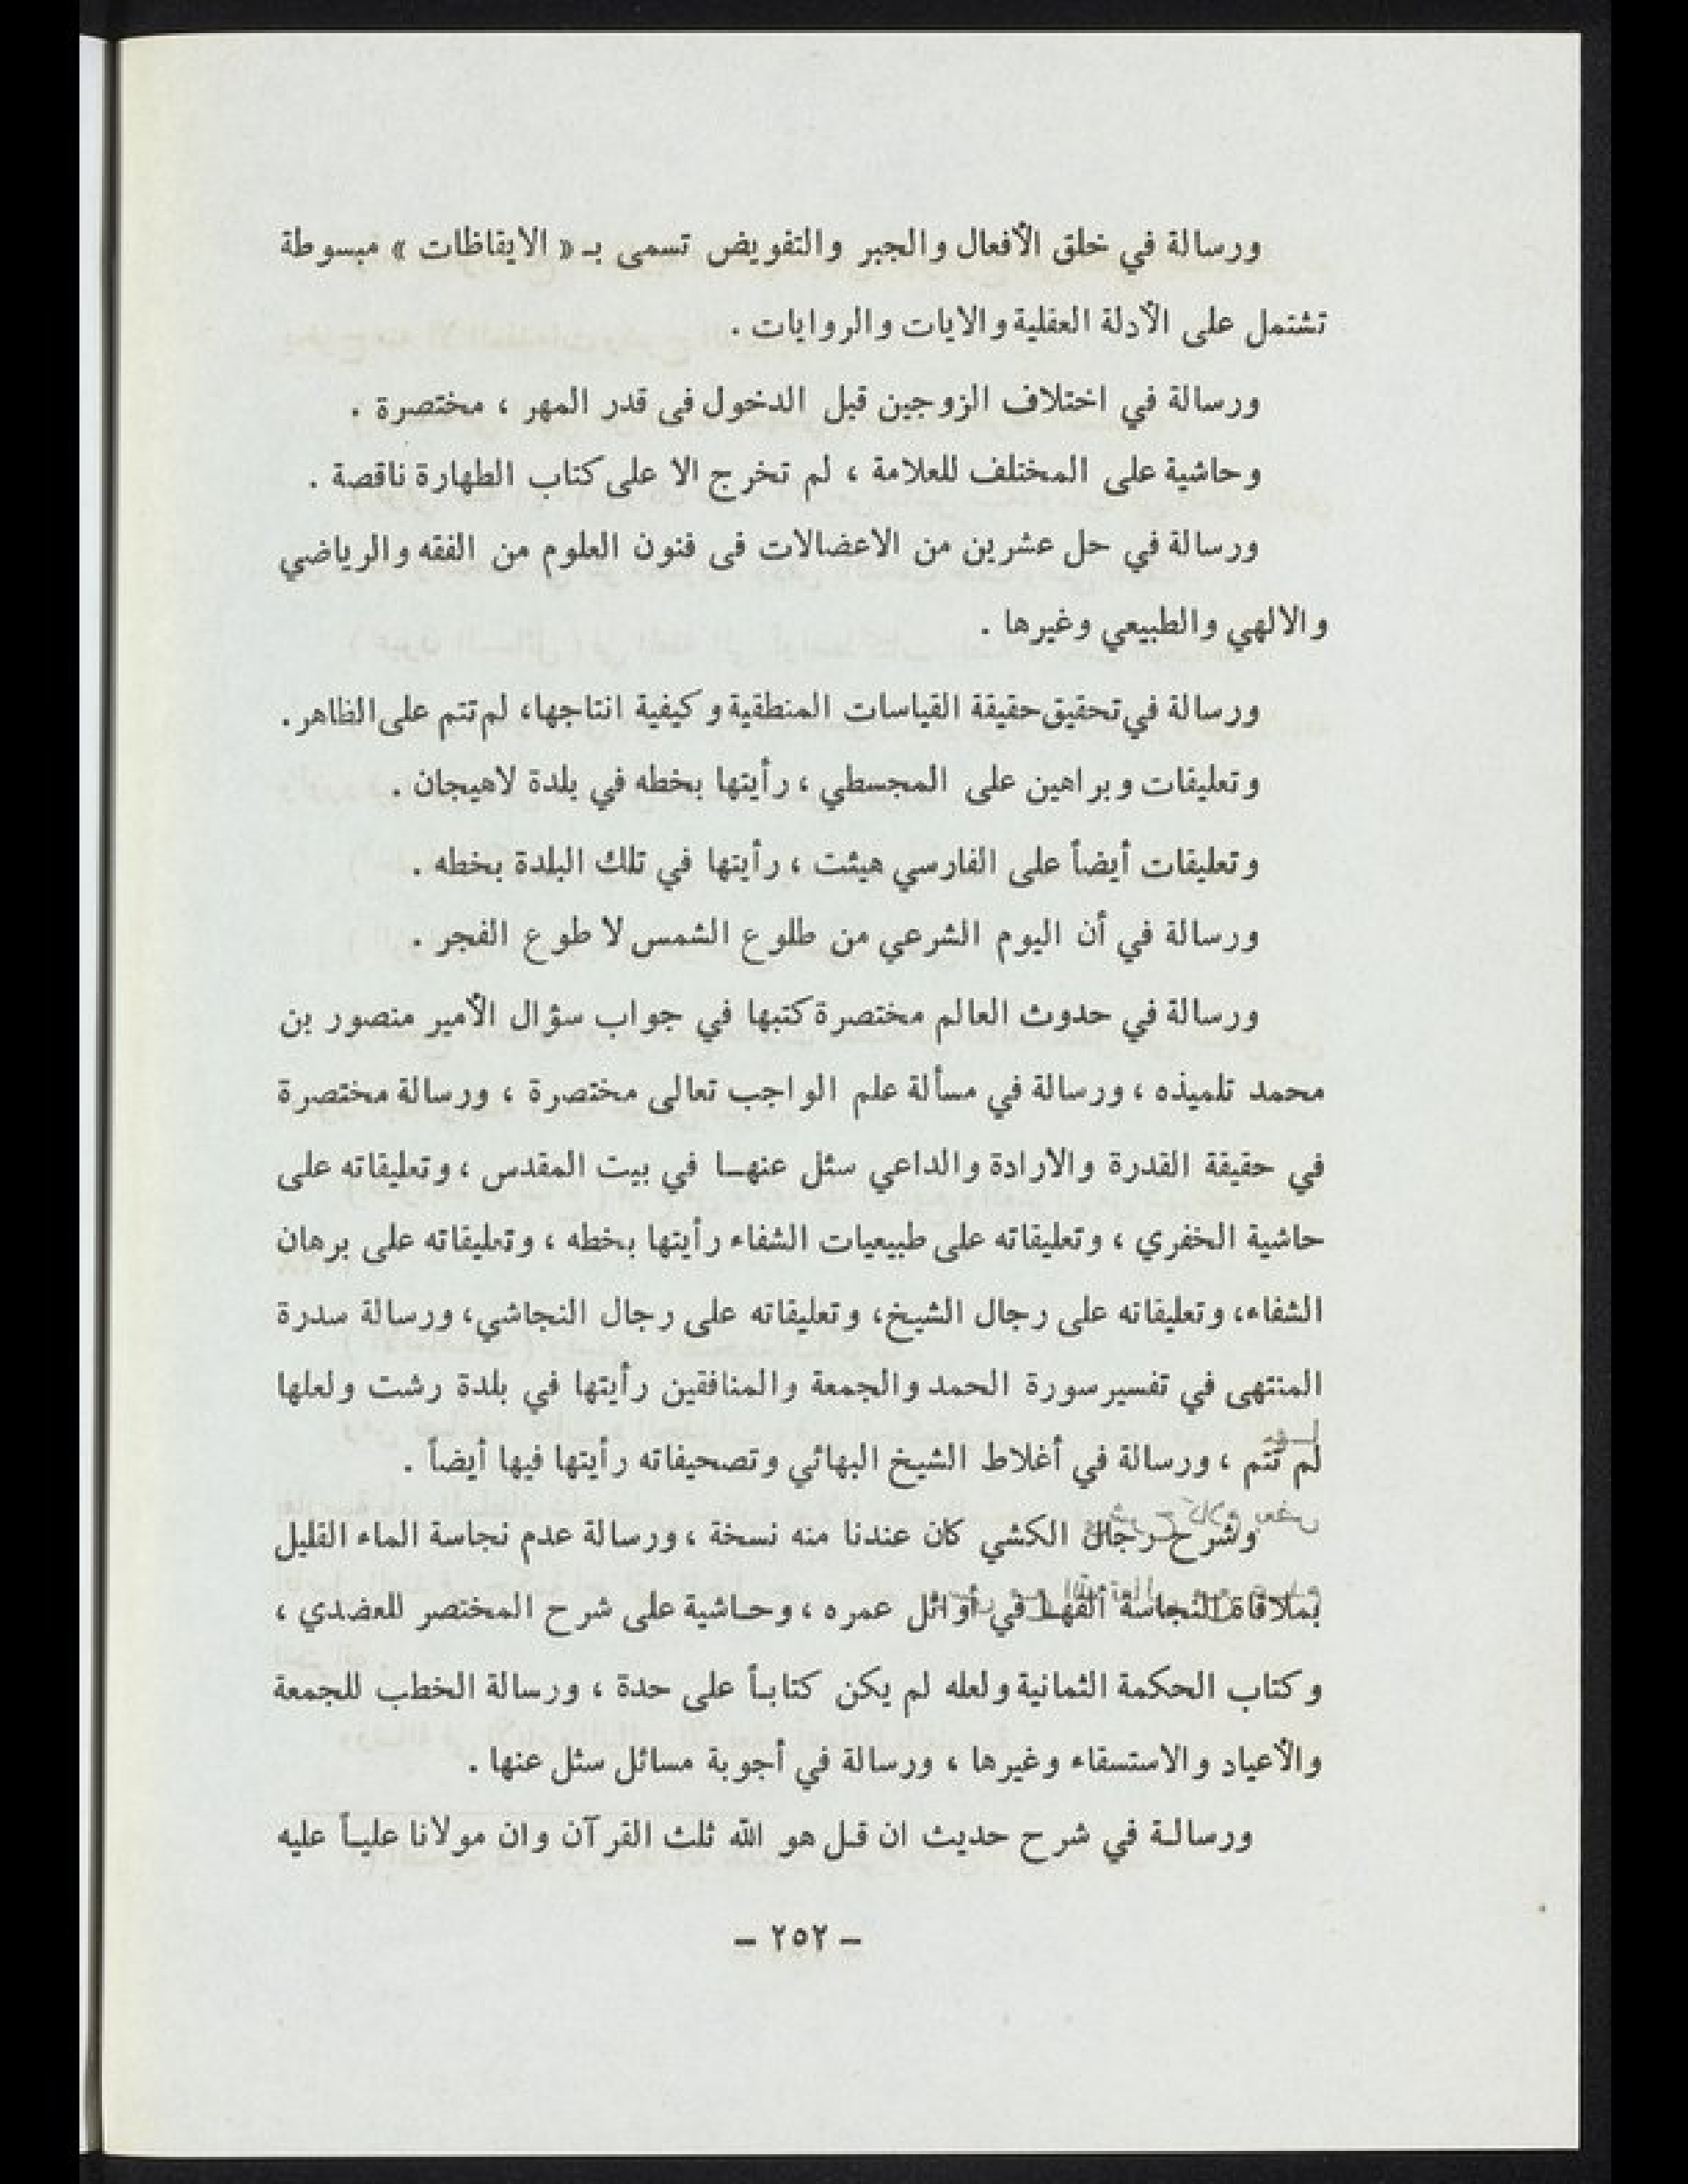 ورسالة في خلق الأفعال والجبر والتفويض تسمى بـ « الايقاظات » مبسوطة
تشتمل على الأدلة العقلية والايات والروايات .
ورسالة في اختلاف الزوجين قبل الدخول فى قدر المهر ، مختصرة .
وحاشية على المختلف للعلامة ، لم تخرج الا على كتاب الطهارة ناقصة .
ورسالة في حل عشرين من الاعضالات فى فنون العلوم من الفقه والرياضي
والالهي والطبيعي وغيرها .
ورسالة في تحقيق حقيقة القياسات المنطقية وكيفية انتاجها، لم تتم على الظاهر .
وتعليقات وبراهين على المجسطي ، رأيتها بخطه في بلدة لاهيجان .
وتعليقات أيضاً على الفارسي هيئت ، رأيتها في تلك البلدة بخطه .
ورسالة في أن اليوم الشرعي من طلوع الشمس لا طوع الفجر .
ورسالة في حدوث العالم مختصرة كتبها في جواب سؤال الأمير منصور بن
محمد تلميذه ، ورسالة في مسألة علم الواجب تعالى مختصرة ، ورسالة مختصرة
في حقيقة القدرة والارادة والداعي سئل عنهـا في بيت المقدس ، وتعليقاته على
حاشية الخفري ، وتعليقاته على طبيعيات الشفاء رأيتها بخطه ، وتعليقاته على برهان
الشفاء، وتعليقاته على رجال الشيخ، وتعليقاته على رجال النجاشي، ورسالة سدرة
المنتهى في تفسير سورة الحمد والجمعة والمنافقين رأيتها في بلدة رشت ولعلها
لم تتم ، ورسالة في أغلاط الشيخ البهائي وتصحيفاته رأيتها فيها أيضاً .
وشرح رجال الكشي كان عندنا منه نسخة ، ورسالة عدم نجاسة الماء القليل
بملاقاة النجاسة ألفها في أوائل عمره ، وحـاشية على شرح المختصر للعضدي ،
وكتاب الحكمة الثمانية ولعله لم يكن كتابـاً على حدة ، ورسالة الخطب للجمعة
والأعياد والاستسقاء وغيرها ، ورسالة في أجوبة مسائل سئل عنها .
ورسالـة في شرح حديث ان قـل هو الله ثلث القرآن وان مولانا عليـاً عليه
– ٢٥٢ –